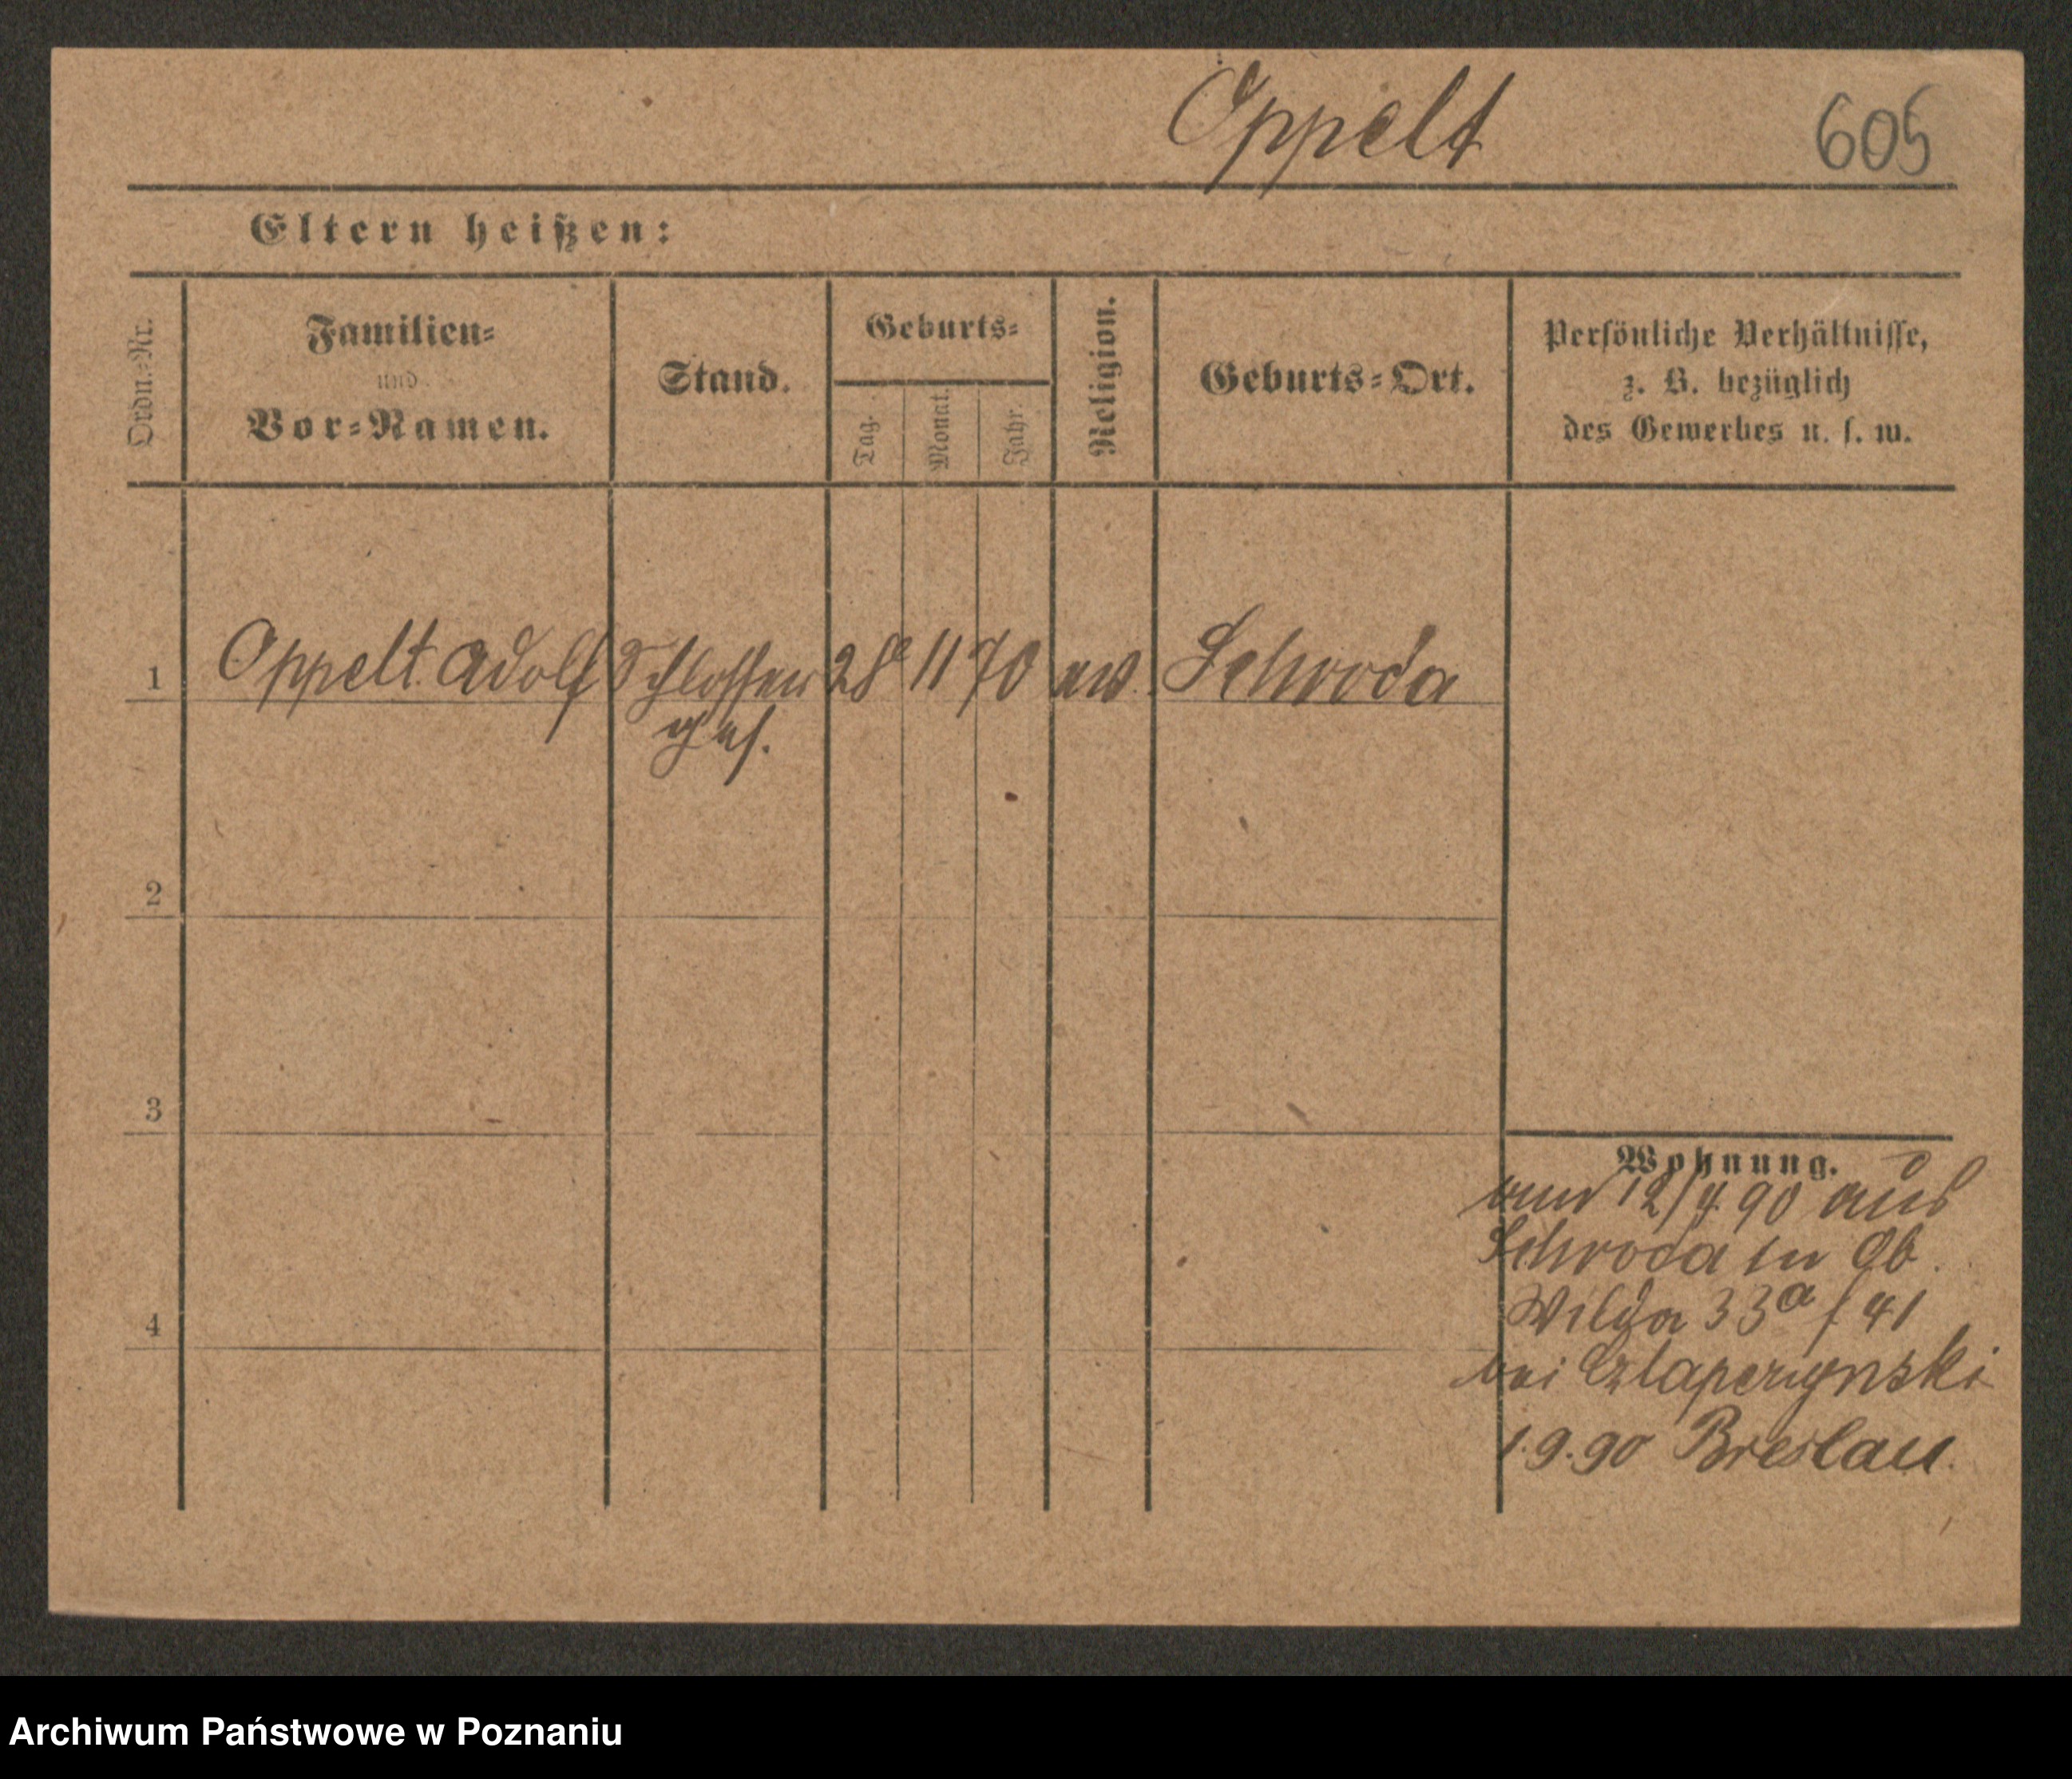 Oppelt
605
Eltern heißen:
Ordn.-Nr.
Familien-
und
Vor-Namen.
Stand.
Geburts-
Tag.
Monat.
Jahr.
Religion.
Geburts-Ort.
Persönliche Verhältnisse,
z. B. bezüglich
des Gewerbes u. s. w.
1 Oppelt Adolf Schlosser 28 11 70 ev. Schroda
ges.
2
3
4
Wohnung.
12/4 90 aus
Schroda in Ob.
Wilda 33a f 41
bei
1.9.90 Breslau.
Archiwum Państwowe w Poznaniu